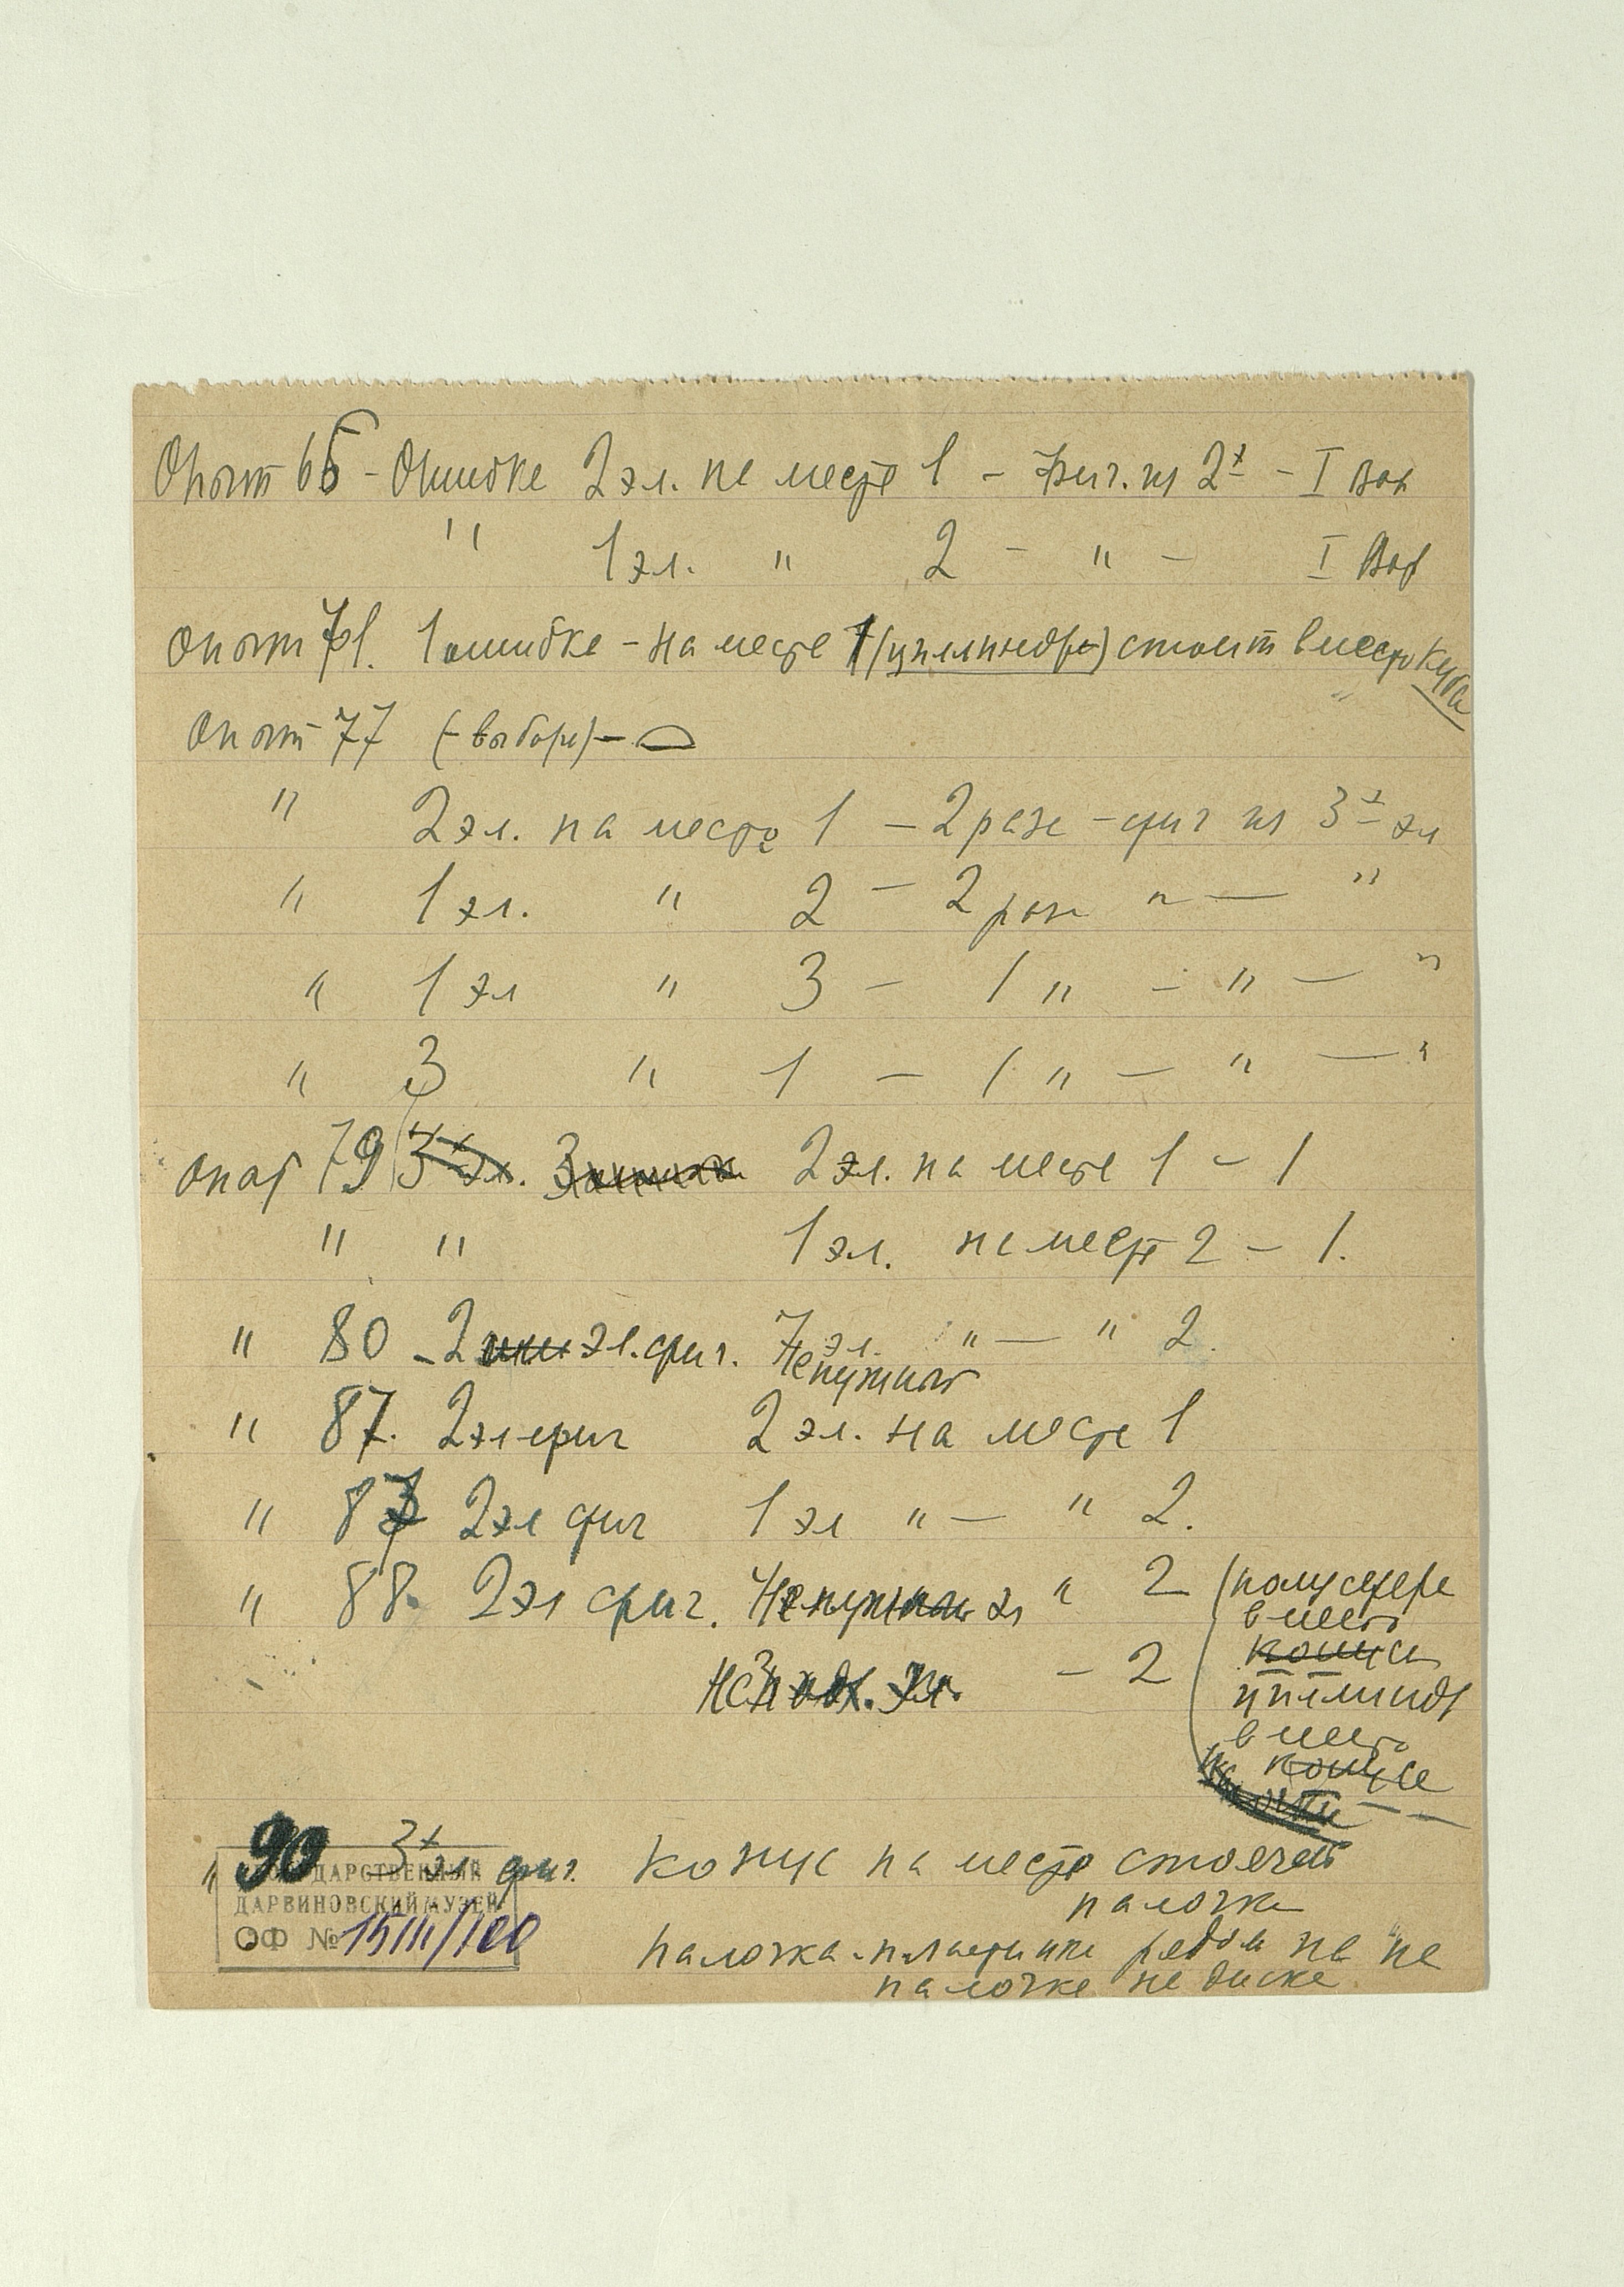 Опыт 65 - Ошибка 2 эл. на место 1 - Фиг. из 2х - I Вар
" 1 эл. " 2 - " - I Вар
Опыт 71. 1 ошибка - на месте 1 (цилиндра) стоит вместо куба
Опыт 77 (- выбора) -
" 2 эл. на место 1 - 2 раза - фиг из 3х эл
" 1 эл. " 2 - 2 раза " — "
" 1 эл " 3 - 1 " - " — "
" 3 " 1 - 1 " — " — "
Опыт 79 3х эл. 2 эл. на месте 1 - 1
" " 1 эл. на место 2 - 1.
" 80 - 2 эл. фиг. эл. " — " 2.
Ненужный
" 87. 2 эл фиг 2 эл. на месте 1
" 87 2 эл фиг 1 эл " — " 2.
" 88. 2 эл фиг. Ненужный эл " 2 (полусфера
вместо
конуса
- 2
цилиндр
вместо
конуса
" 90 3х эл фиг. Конус на место стоячей
палочки
палочка - пластинка рядом на не
палочке на диске
ГОСУДАРСТВЕННЫЙ
ДАРВИНОВСКИЙ МУЗЕЙ
ОФ № 15111/100